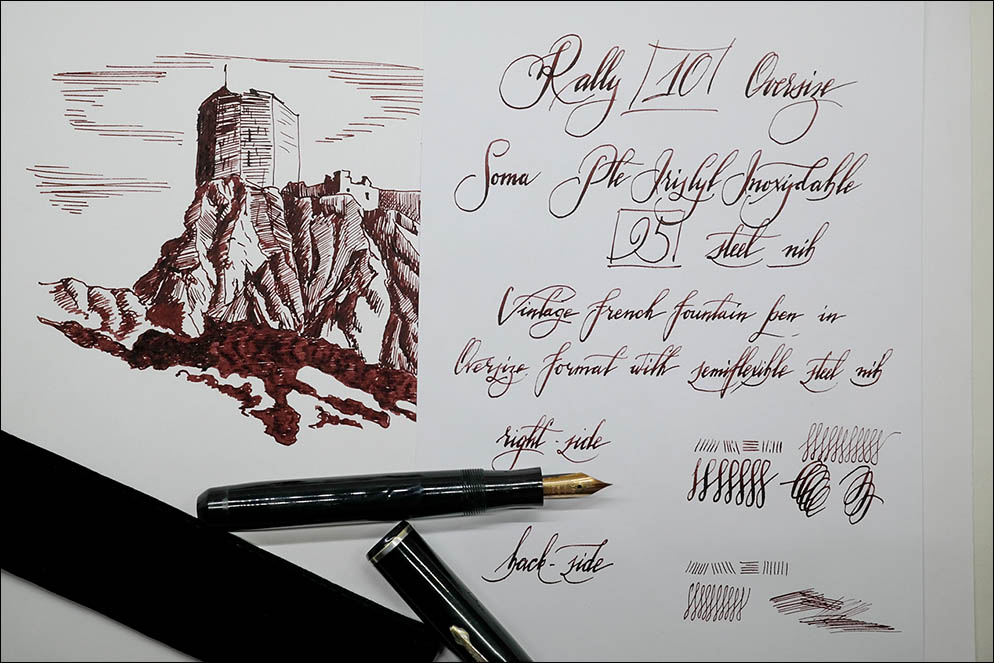 Rally 10 Oversize
Soma Pte Iristyl Inoxydable
25 steel nib
Vintage french fountain pen in
Oversize format with semiflexible steel nib
right-side
back-side